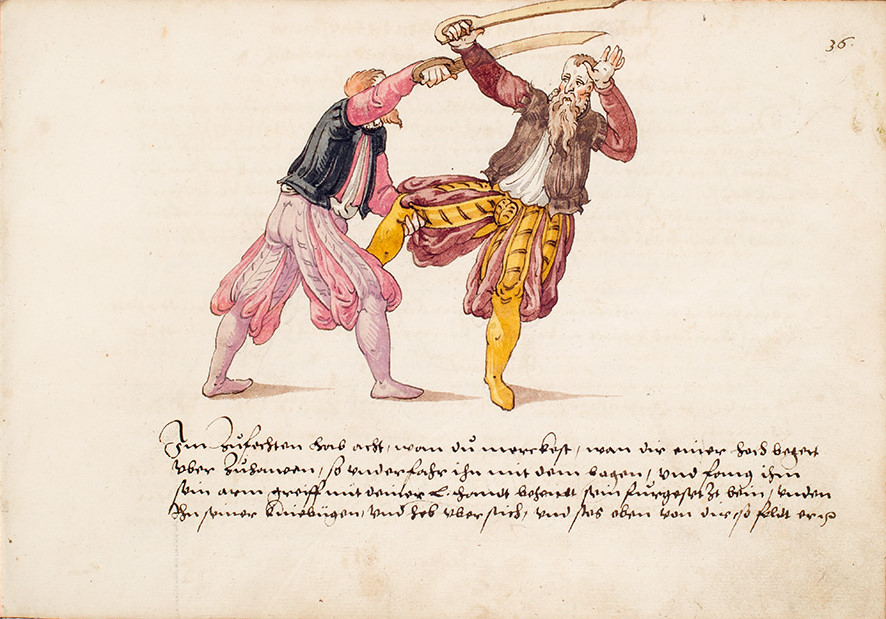 36.
Im Zufechten hab acht, wan du merckest, wan dir einer hoch begert
uber Zuhauen, so underfahr ihn mit dem bogen, und fang ihm
sein arm, greiff mit deiner L. handt behendt sein furgesetzt bein, unden
Inn seiner kniebügen, und heb ubersich, und stos oben von dir, so feldt er